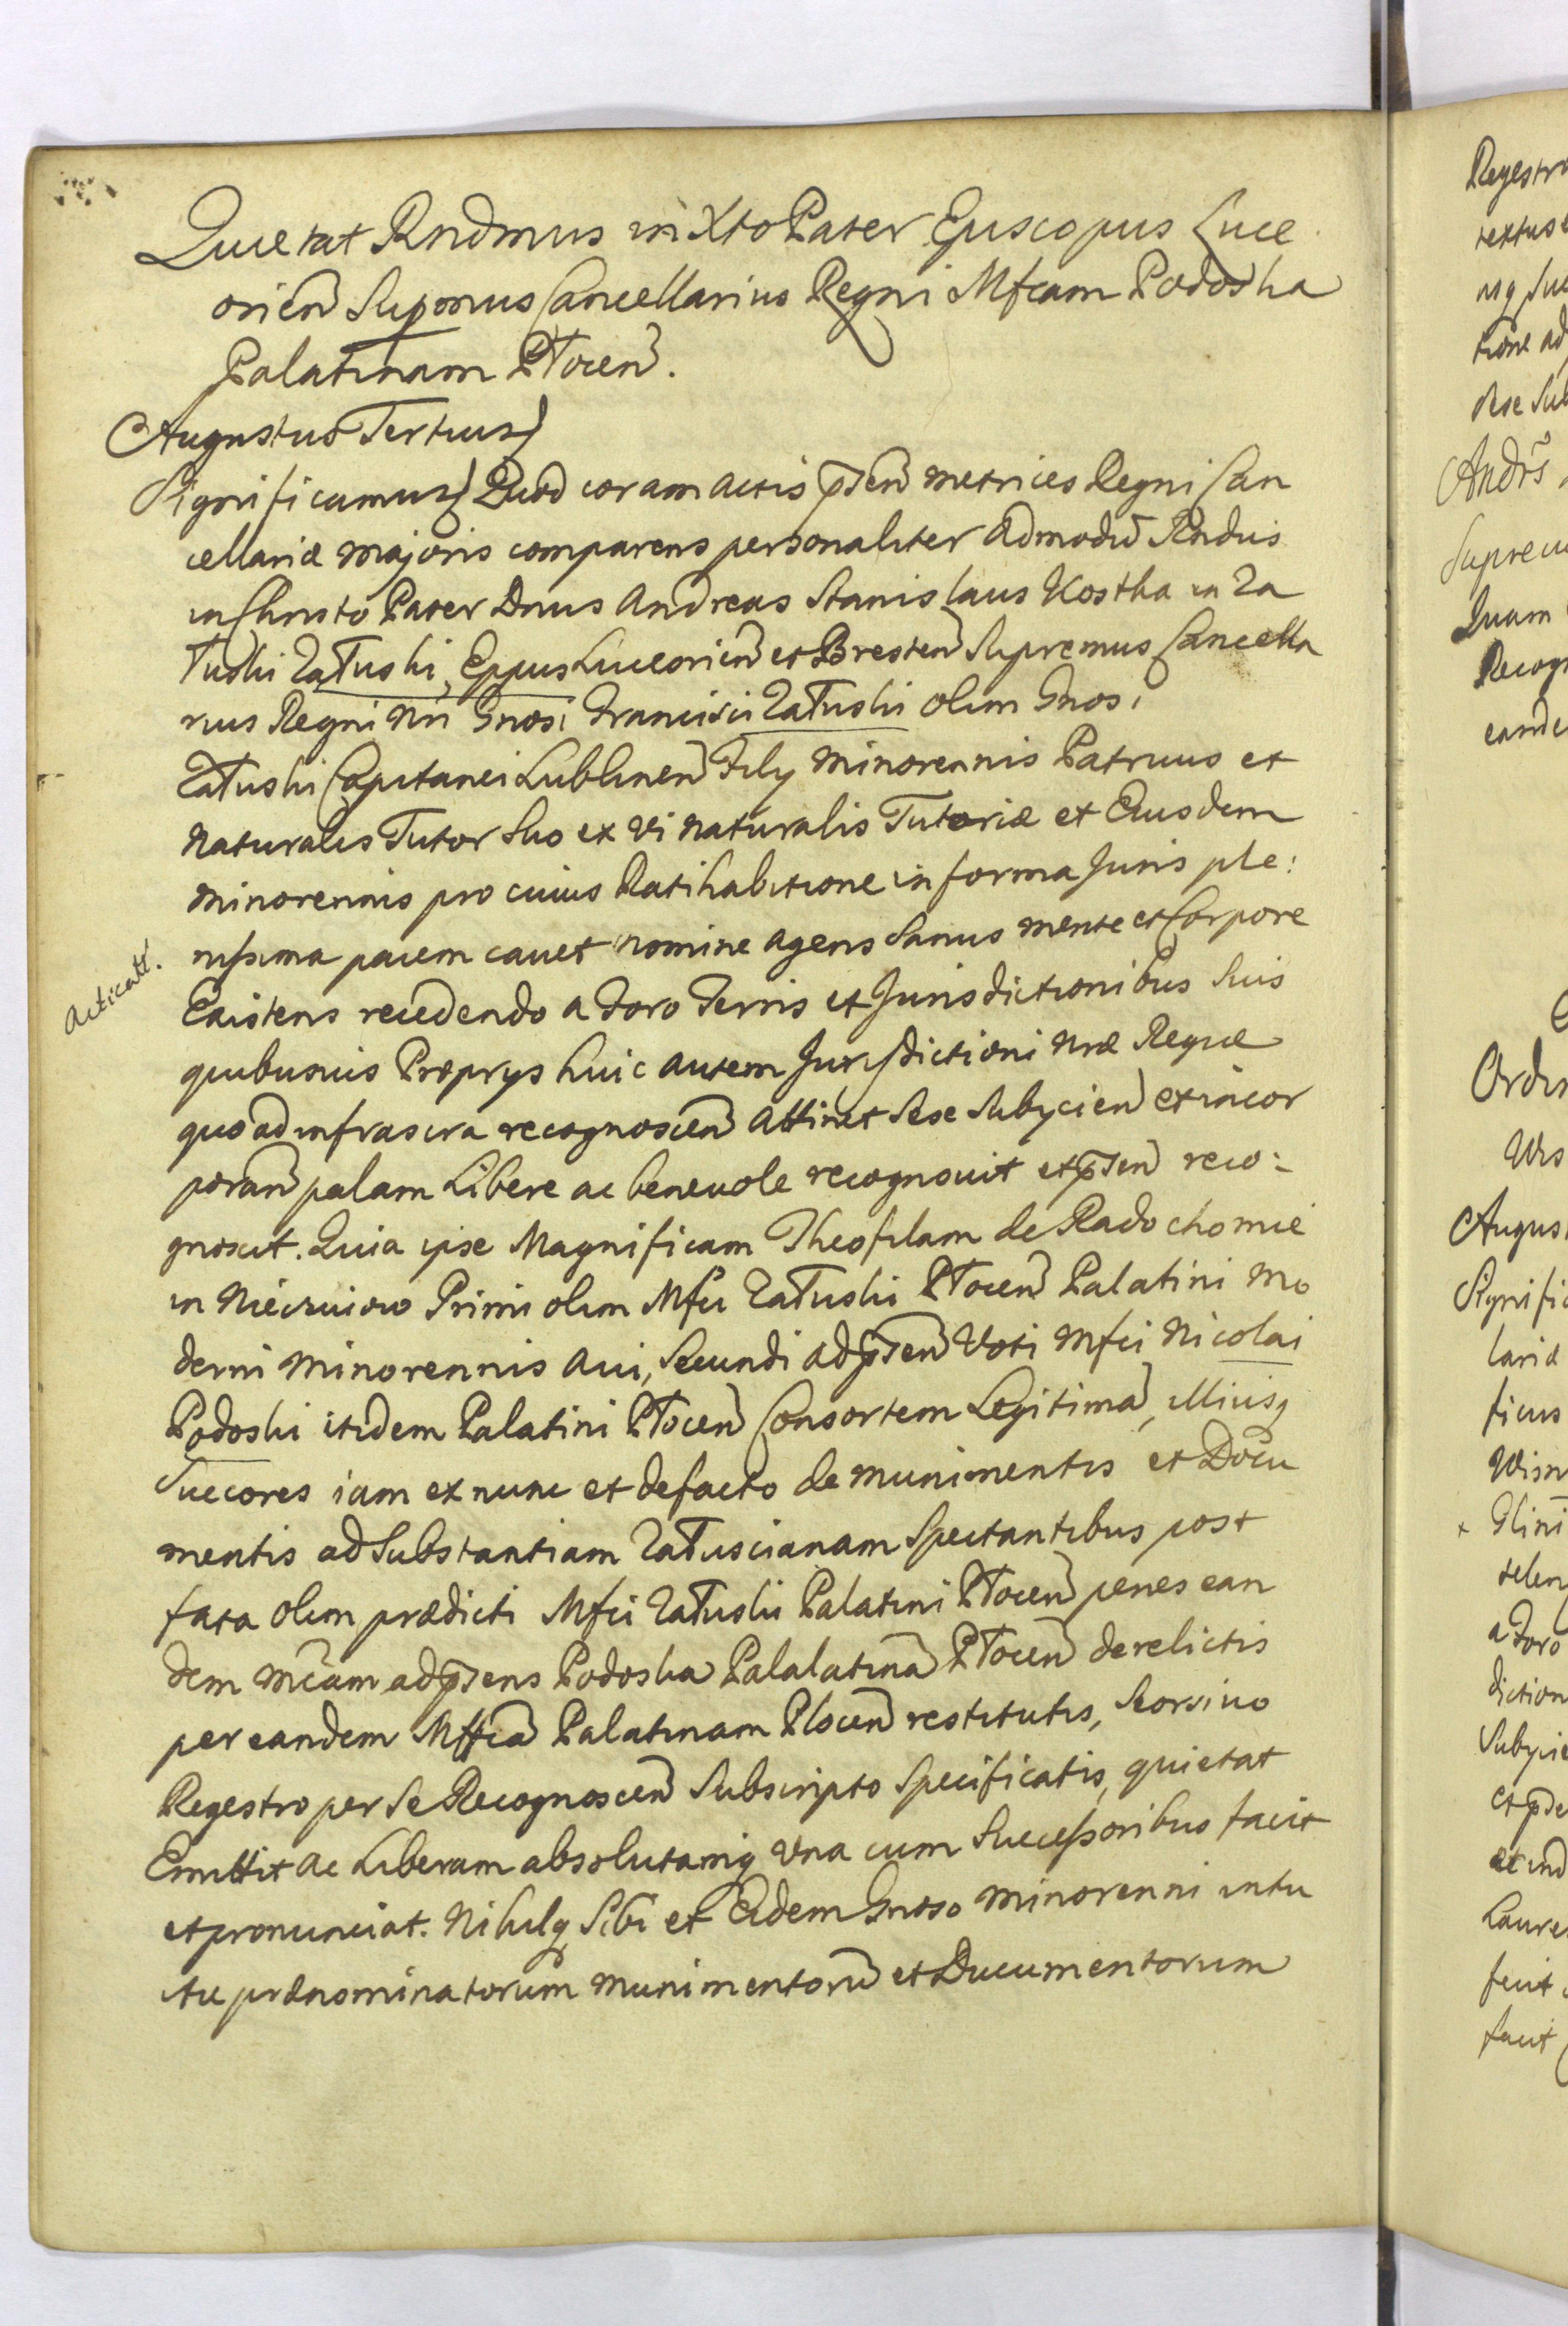 Quietat Rndmus in Xto Pater Episcopus Luce
orien Supmus Cancellarius Regni Mfcam Podoska
Palatinam Płocen.
Augustus Tertius
Significamus Quod coram actis pñsen metrices Regni Can
cellariæ majoris comparens personaliter admodu Rndus
in Christo Pater Dnus Andreas Stanislaus Kostka in Za
łuski Załuski, Eppus Luceorien et Bresten Supremus Cancella
rius Regni Nri Gnosi Francisci Załuski olim Gnosi
Załuski Capitanei Lublinen Filij minorennis Patruus et
naturalis Tutor suo ex vi naturalis Tutoriæ et Eiusdem
minorennis pro cuius Ratihabitione in forma Juris ple:
nissima pacem cavet nomine agens Sanus mente et Corpore
acticatt.
Existens recedendo a Foro Terris et Jurisdictionibus Suis
quibusvis Proprys huic autem Jurisdictioni Nræ Regiæ
quo ad infrascra recognoscen attinet Sese Subycien et incor
poran palam Libere ac benevole recognovit et pñsen reco:
gnoscit. Quia ipse Magnificam Theofilam de Radochonie
in Nieczuiow Primi olim Mfci Załuski Płocen Palatini Mo
derni Minorennis Avi, Secundi ad pñsen Voti Mfci Nicolai
Podoski itidem Palatini Płocen Consortem Legitima, illiusq
Succores iam ex nunc et defacto de munimentis et Docu
mentis ad Substantiam Załuscianam Spectantibus post
fata olim prædicti Mfci Załuski Palatini Płocen penes ean
dem Mcam ad pñsens Podoska Palalatina Płocen derelictis
per eandem Mffica Palatinam Plocen restitutis, Seorsivo
Regestro per Se Recognoscen Subscripto Specificatis, quietat
Emittit ac Liberam absolutamq Una cum Successoribus facit
et pronunciat. Nihilq Sibi et Eidem Gnoso minorenni intu
itu prænominatorum munimentoru et Ducumentorum